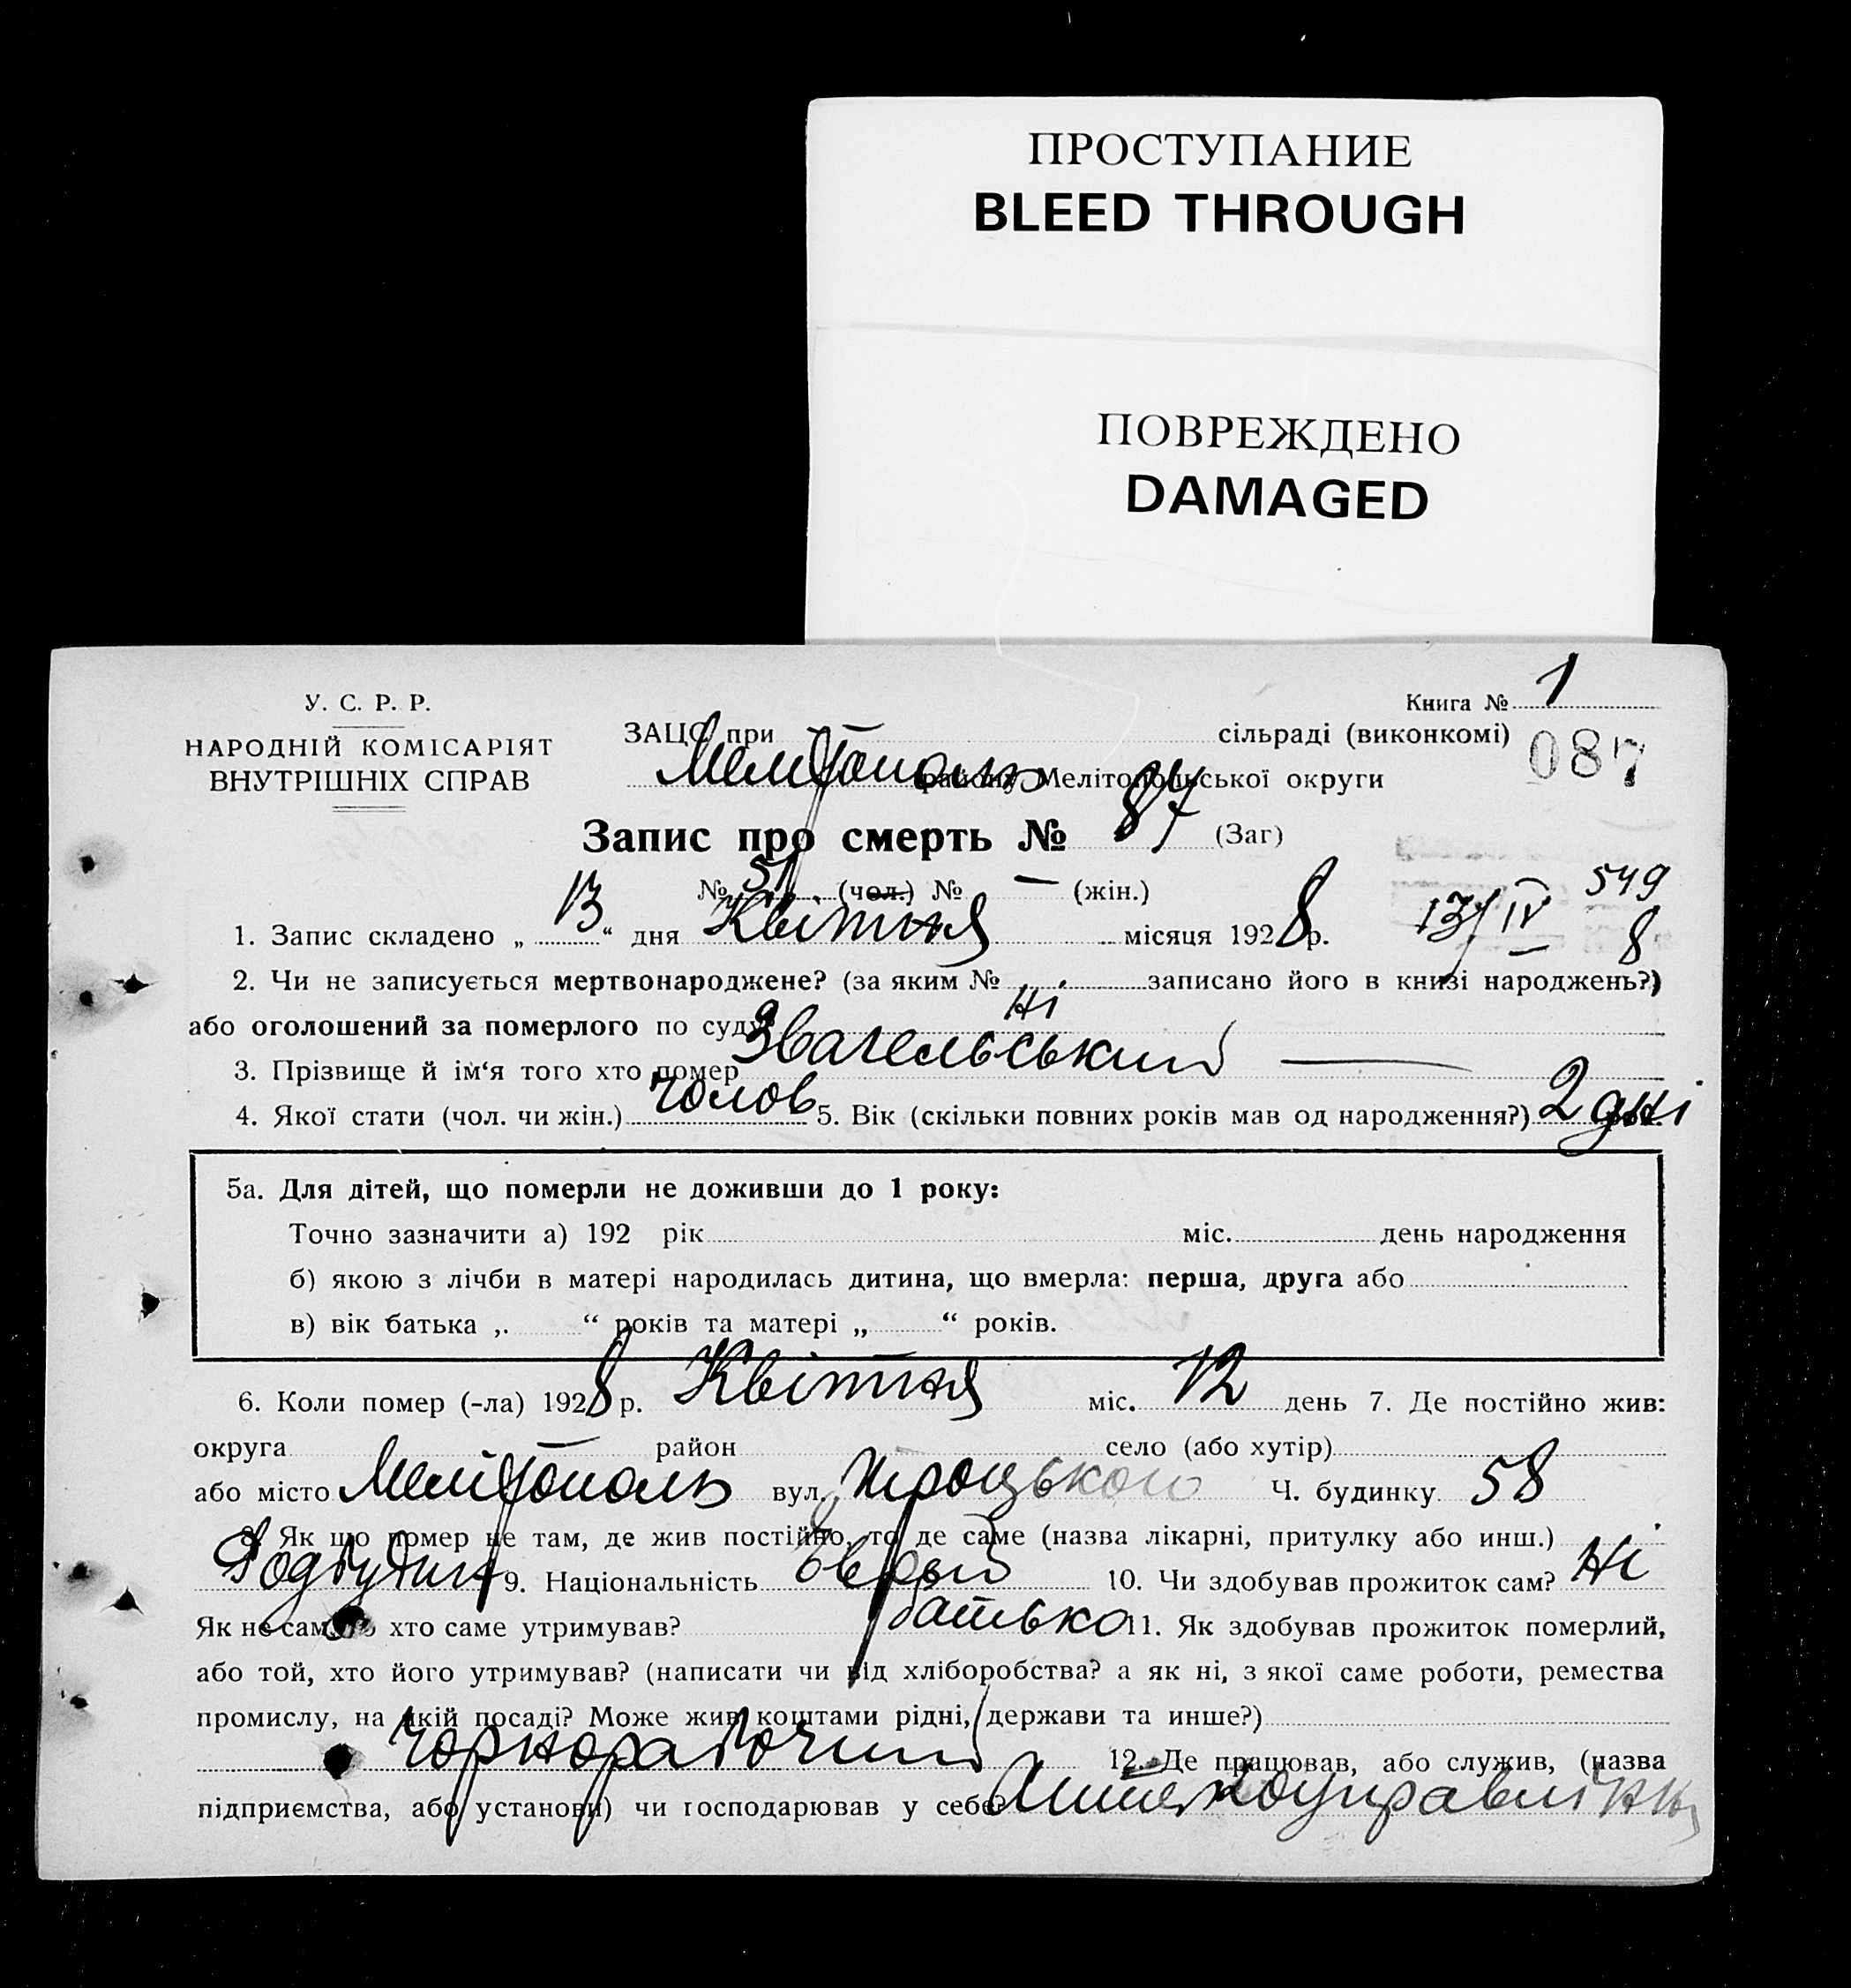 ПРОСТУПАНИЕ
BLEED THROUGH
ПОВРЕЖДЕНО
DAMAGED
Книга № 1
У. С. Р. Р.
НАРОДНІЙ КОМІСАРІЯТ
ВНУТРІШНІХ СПРАВ
ЗАЦС при сільраді (виконкомі)
087
Мелітополь району Мелітопольської округи
Запис про смерть № 87 (Заг)
№ 51 (чол.) № — (жін.)
549
1. Запис складено „ 13 “ дня Квітня місяця 1928 р. 13/IV 8
2. Чи не записується мертвонароджене? (за яким № записано його в книзі народжень?)
або оголошений за померлого по суду Ні
3. Прізвище й ім‘я того хто помер Звагельський —
4. Якої стати (чол. чи жін.) Чолов 5. Вік (скільки повних років мав од народження?) 2 дні
5а. Для дітей, що померли не доживши до 1 року:
Точно зазначити а) 192 рік міс. день народження
б) якою з лічби в матері народилась дитина, що вмерла: перша, друга або
в) вік батька „ “ років та матері „ “ років.
6. Коли помер (-ла) 1928 р. Квітня міс. 12 день 7. Де постійно жив:
округа район село (або хутір)
або місто Мелітополь вул. Троцького Ч. будинку 58
8. Як що помер не там, де жив постійно, то де саме (назва лікарні, притулку або инш.)
9. Національність Єврей 10. Чи здобував прожиток сам? Ні
Як не сам, то хто саме утримував? батько 11. Як здобував прожиток померлий,
або той, хто його утримував? (написати чи від хліборобства? а як ні, з якої саме роботи, ремества
промислу, на якій посаді? Може жив коштами рідні, держави та инше?)
Чорноработчий 12. Де працював, або служив, (назва
підприємства, або установи) чи господарював у себе?